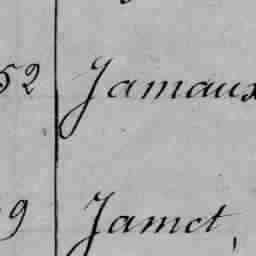 52 Jamaux
9 Jamet,